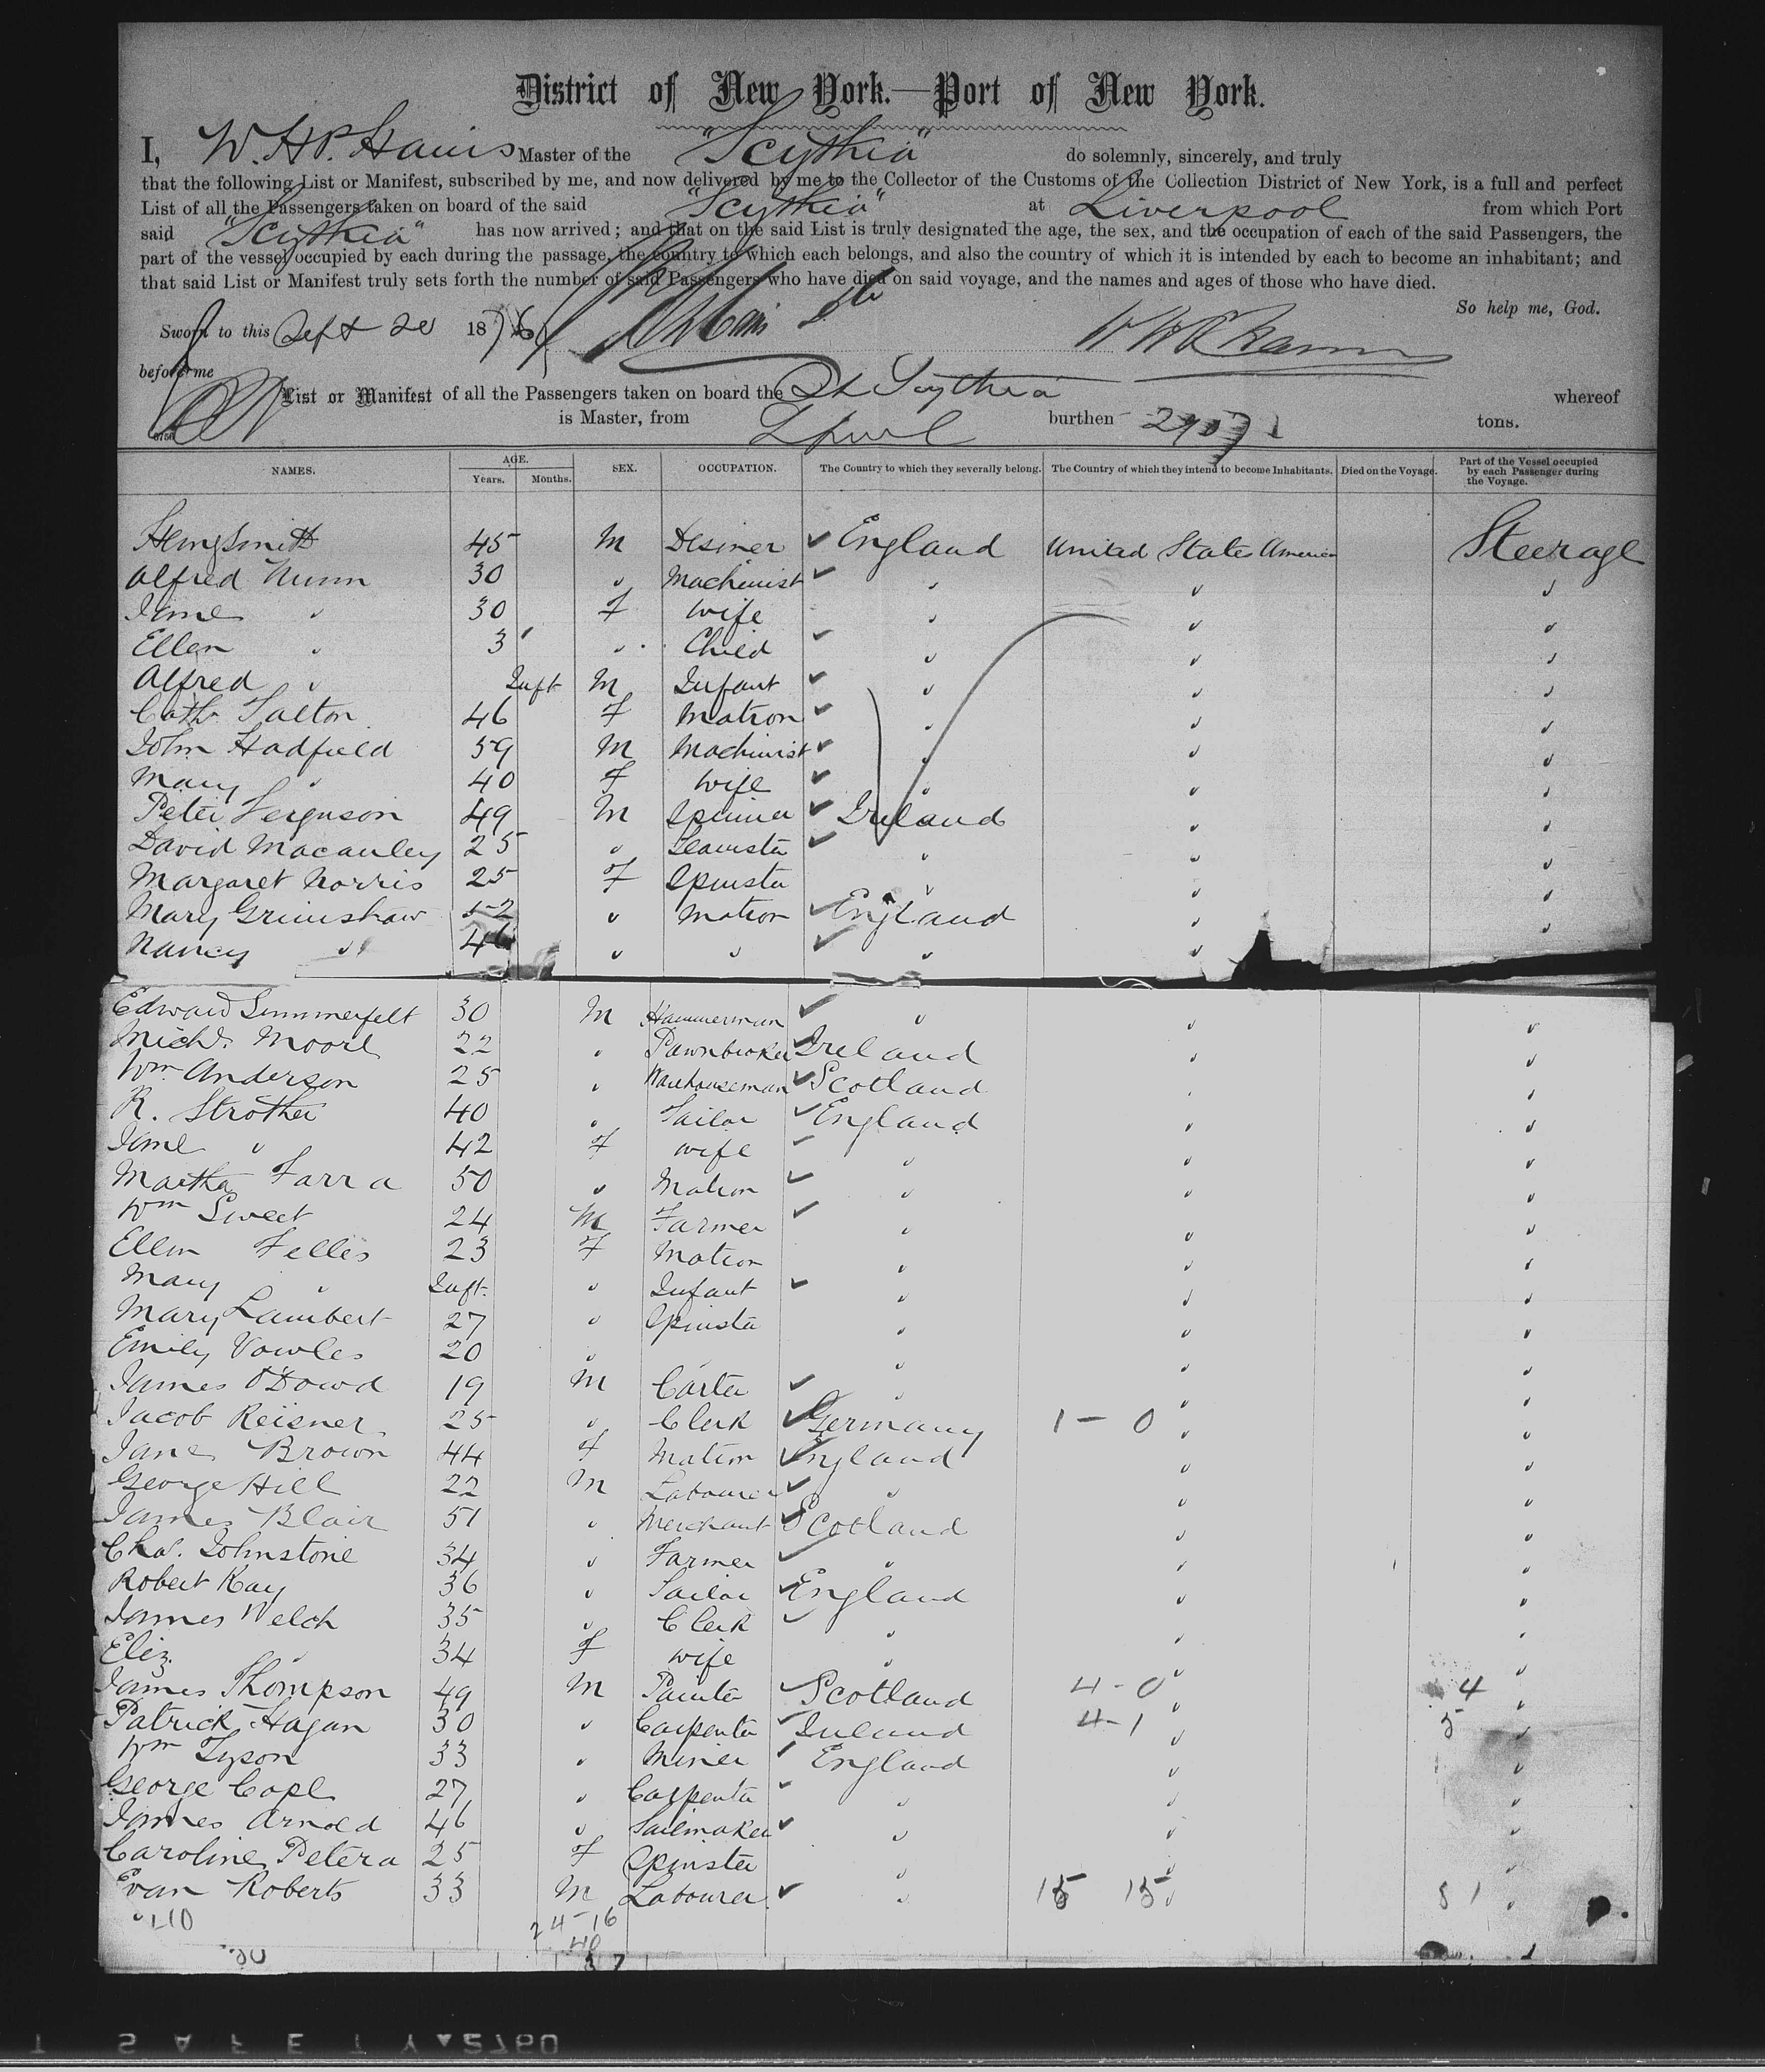 District of New York.—Port of New York.
I, W. H. P. Hains Master of the "Scythia" do solemnly, sincerely, and truly
that the following List or Manifest, subscribed by me, and now delivered by me to the Collector of the Customs of the Collection District of New York, is a full and perfect
List of all the Passengers taken on board of the said "Scythia" at Liverpool from which Port
said "Scythia" has now arrived; and that on the said List is truly designated the age, the sex, and the occupation of each of the said Passengers, the
part of the vessel occupied by each during the passage, the country to which each belongs, and also the country of which it is intended by each to become an inhabitant; and
that said List or Manifest truly sets forth the number of said Passengers who have died on said voyage, and the names and ages of those who have died.
So help me, God.
Sworn to this Sept 20 1876
before me
List or Manifest of all the Passengers taken on board the SS Scythia whereof
is Master, from Lpool burthen tons.
NAMES. AGE. SEX. OCCUPATION. The Country to which they severally belong. The Country of which they intend to become Inhabitants. Died on the Voyage. Part of the Vessel occupied by each Passenger during the Voyage.
Years. Months.
Henry Smith 45 M England United States America Steerage
Alfred Nunn 30 " Machinist " " "
Jane " 30 F Wife " " "
Ellen " 3 " Child " " "
Alfred " Inft M Infant " " "
Cath. Talton 46 F Matron " " "
John Hadfield 59 M Machinist " " "
Mary " 40 F Wife " " "
Peter Ferguson 49 M Spinner Ireland " "
David Macauley 25 " Teamster " " "
Margaret Norris 25 F Spinster " " "
Mary Grimshaw 52 " Matron England " "
Nancy " 46 " " " "
Edward Summerfelt 30 M Hammerman " " "
Michl. Moore 22 " Pawnbroker Ireland " "
Wm Anderson 25 " Warehouseman Scotland " "
R. Strother 40 " Tailor England " "
Jane " 42 F Wife " " "
Martha Farra 50 " Matron " " "
Wm Sweet 24 M Farmer " " "
Ellen Felles 23 F Matron " " "
Mary " Inft. " Infant " " "
Mary Lambert 27 " Spinster " " "
Emily Vowles 20 " " " "
James O'Dowd 19 M Carter " " "
Jacob Reisner 25 " Clerk Germany 1 - 0 " "
Jane Brown 44 F Matron England " "
George Hill 22 M Labourer " " "
James Blair 51 " Merchant Scotland " "
Chas. Johnstone 34 " Farmer " " "
Robert Kay 36 " Tailor England " "
James Welch 35 " Clerk " " "
Eliz. " 34 F Wife " " "
James Thompson 49 M Painter Scotland 4-0 " 4 "
Patrick Hagan 30 " Carpenter Ireland 4-1 " 5 "
Wm Tyson 33 " Miner England " "
George Cope 27 " Carpenter " " "
James Arnold 46 " Sailmaker " " "
Caroline Petera 25 F Spinster " " "
Evan Roberts 33 M Labourer " 15 15 "
24-16
40